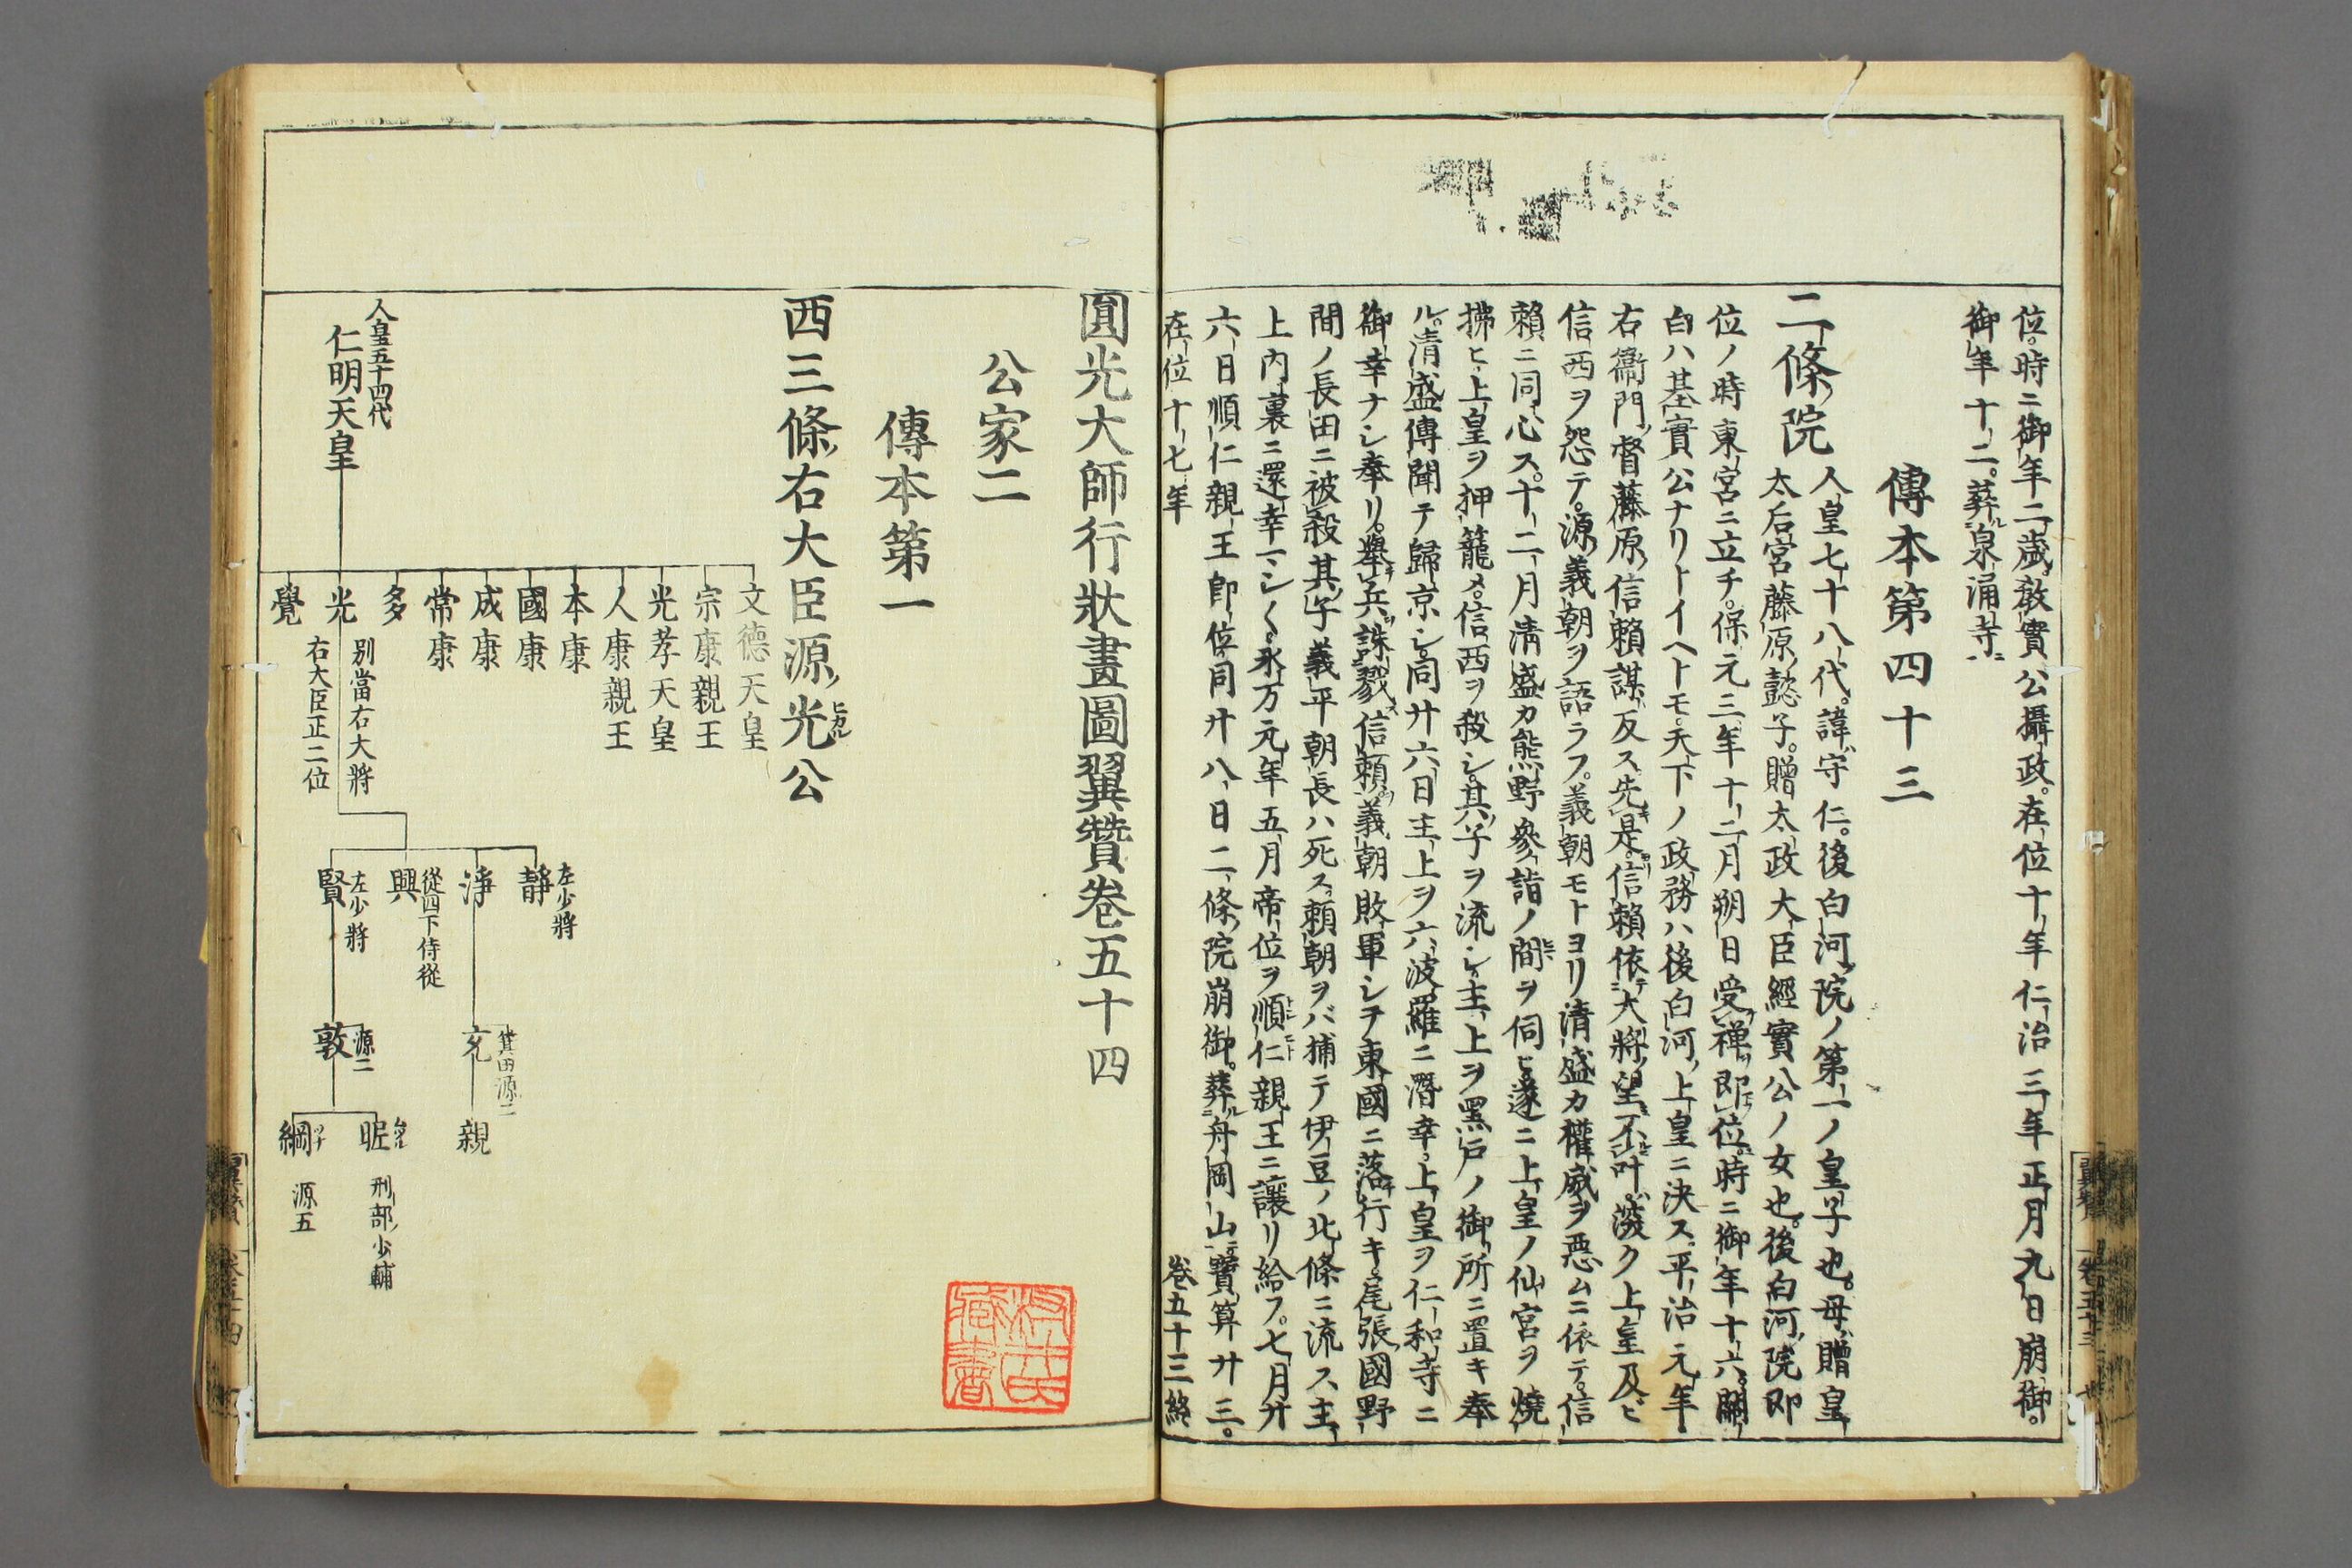 位。時ニ御年二歳。敎實公攝政。在位十年仁治三年正月九日崩御。
御年十二。葬ル泉涌寺ニ
傳本第四十三
二條院
人皇七十八代。諱ハ守仁。後白河ノ院ノ第一ノ皇子也。母ハ贈皇
太后宮藤原ノ懿子。贈太政大臣經實公ノ女也。後白河ノ院即
位ノ時東宮ニ立チ。保元三年十二月朔日受禅即位。時ニ御年十六。關
白ハ基實公ナリトイヘトモ。天下ノ政務ハ後白河ノ上皇ニ決ス。平治元年
右衞門ノ督藤原ノ信賴謀反ス。先是信賴依テ大將ノ望不叶。深ク上皇及ビ
信西ヲ怨テ。源ノ義朝ヲ語ラフ。義朝モトヨリ清盛カ權威ヲ悪ムニ依テ。信
賴ニ同心ス。十二月淸盛カ熊野參詣ノ間ヲ伺ヒ。遂ニ上皇ノ仙宮ヲ燒
拂ヒ。上皇ヲ押籠メ。信西ヲ殺シ。其ノ子ヲ流シ。主上ヲ黑戸ノ御所ニ置キ奉
ル。清盛傳聞テ歸京シ。同廿六日主上ヲ六波羅ニ潛幸。上皇ヲ仁和寺ニ
御幸ナシ奉リ。擧兵誅戮ス信賴。義朝敗軍シテ東國ニ落行キ。尾張國野
間ノ長田ニ被殺。其ノ子義平朝長ハ死ス。賴朝ヲバ捕テ伊豆ノ北條ニ流ス。主
上内裏ニ還幸マシマシく。永万元年五月帝位ヲ順仁親王ニ讓リ給フ。七月廿
六日順仁親王即位。同廿八日二條ノ院崩御。葬ル舟岡山ニ。寶算廿三。
在位十七年
卷五十三終
圓光大師行狀畫圖翼贊卷五十四
公家二
傳本第一
西三條右大臣源ノ光ヒカル公
人皇五十四代
仁明天皇
文德天皇
宗康親王
光孝天皇
人康親王
本康
國康
成康
常康
多
光
別當右大將
右大臣正二位
覺
靜
左少將
淨
興
從四下侍從
賢
左少將
充
箕田源二
敦
源二
親
昵
刑部ノ少輔
綱ツナ
源五